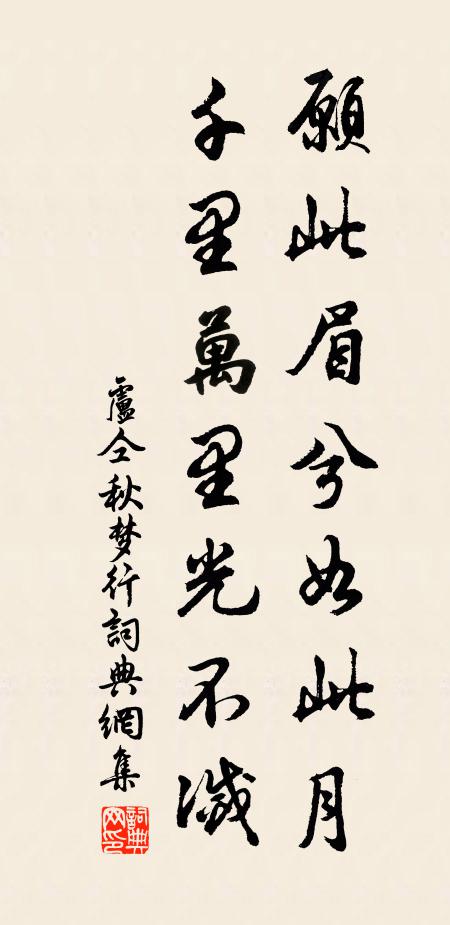 願此眉兮如此月
千里萬里光不滅
盧仝秋梦行詞典網集
詞典网印